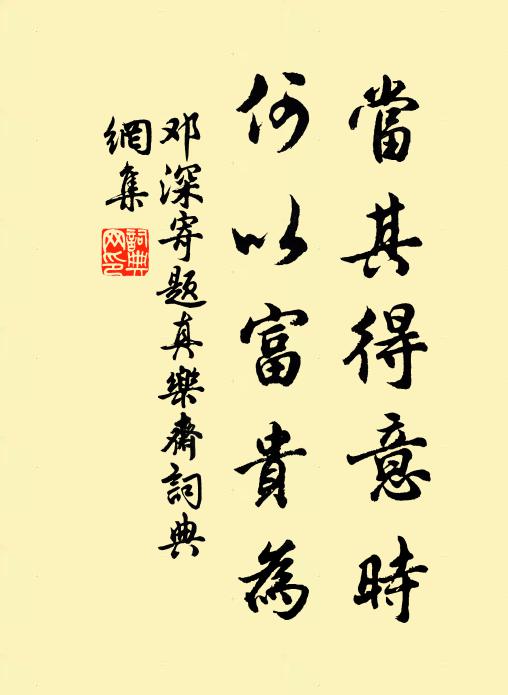 當其得意時
何以富貴為
邓深寄題真樂齋詞典
網集
詞典
网印